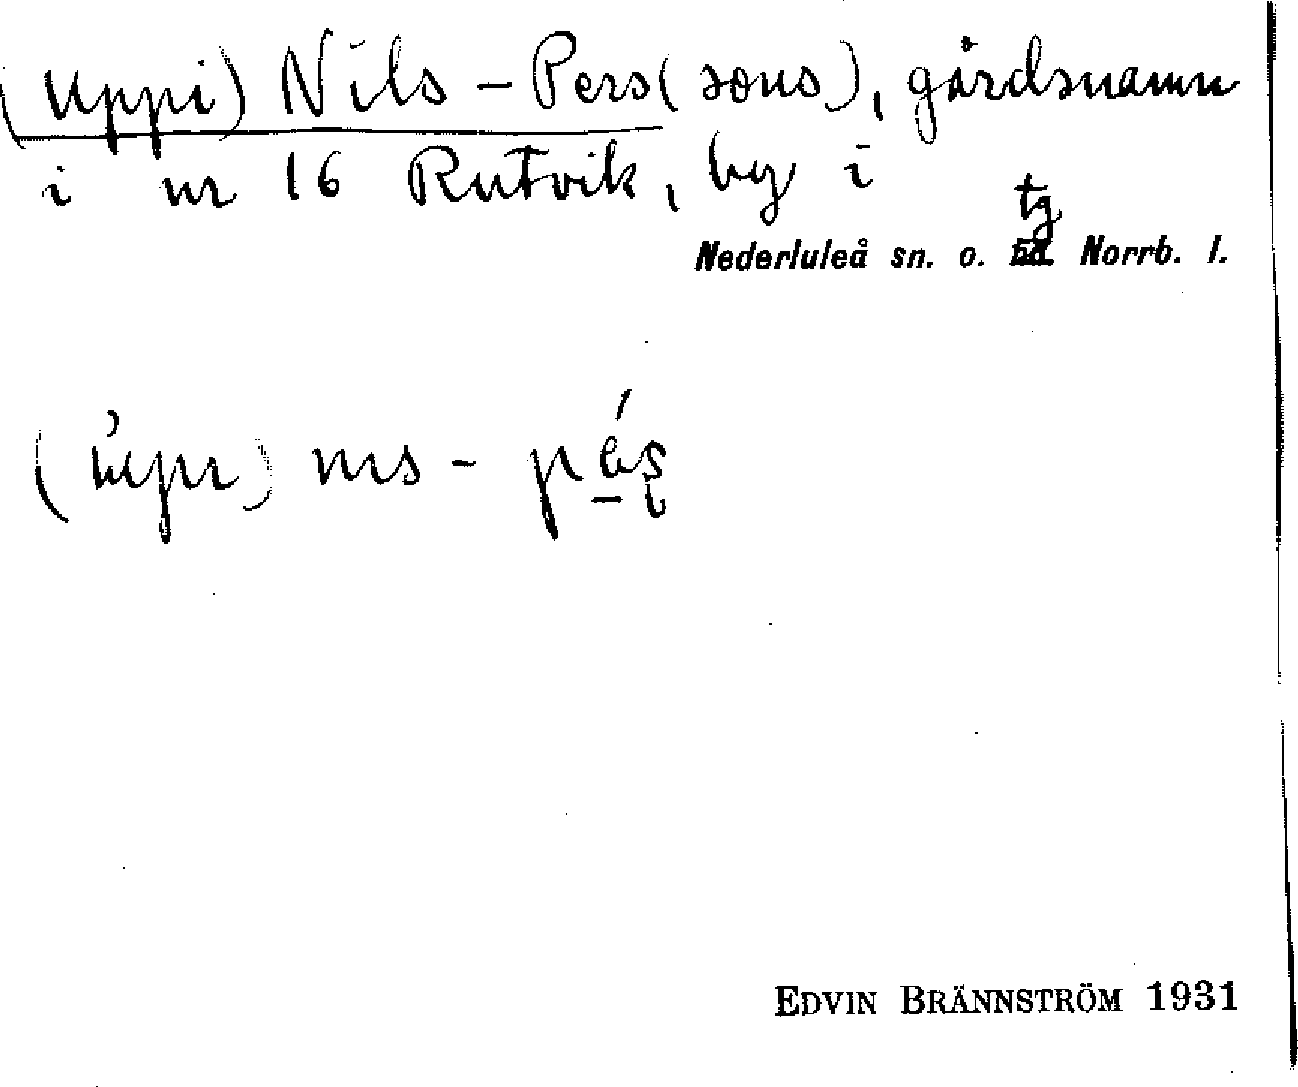 (Uppi) Nils-Pers(sons), gårdsnamn
i nr 16 Rutvik, by i
tg
Nederluleå sn. o. Norrb. l.
EDVIN BRÄNNSTRÖM 1931